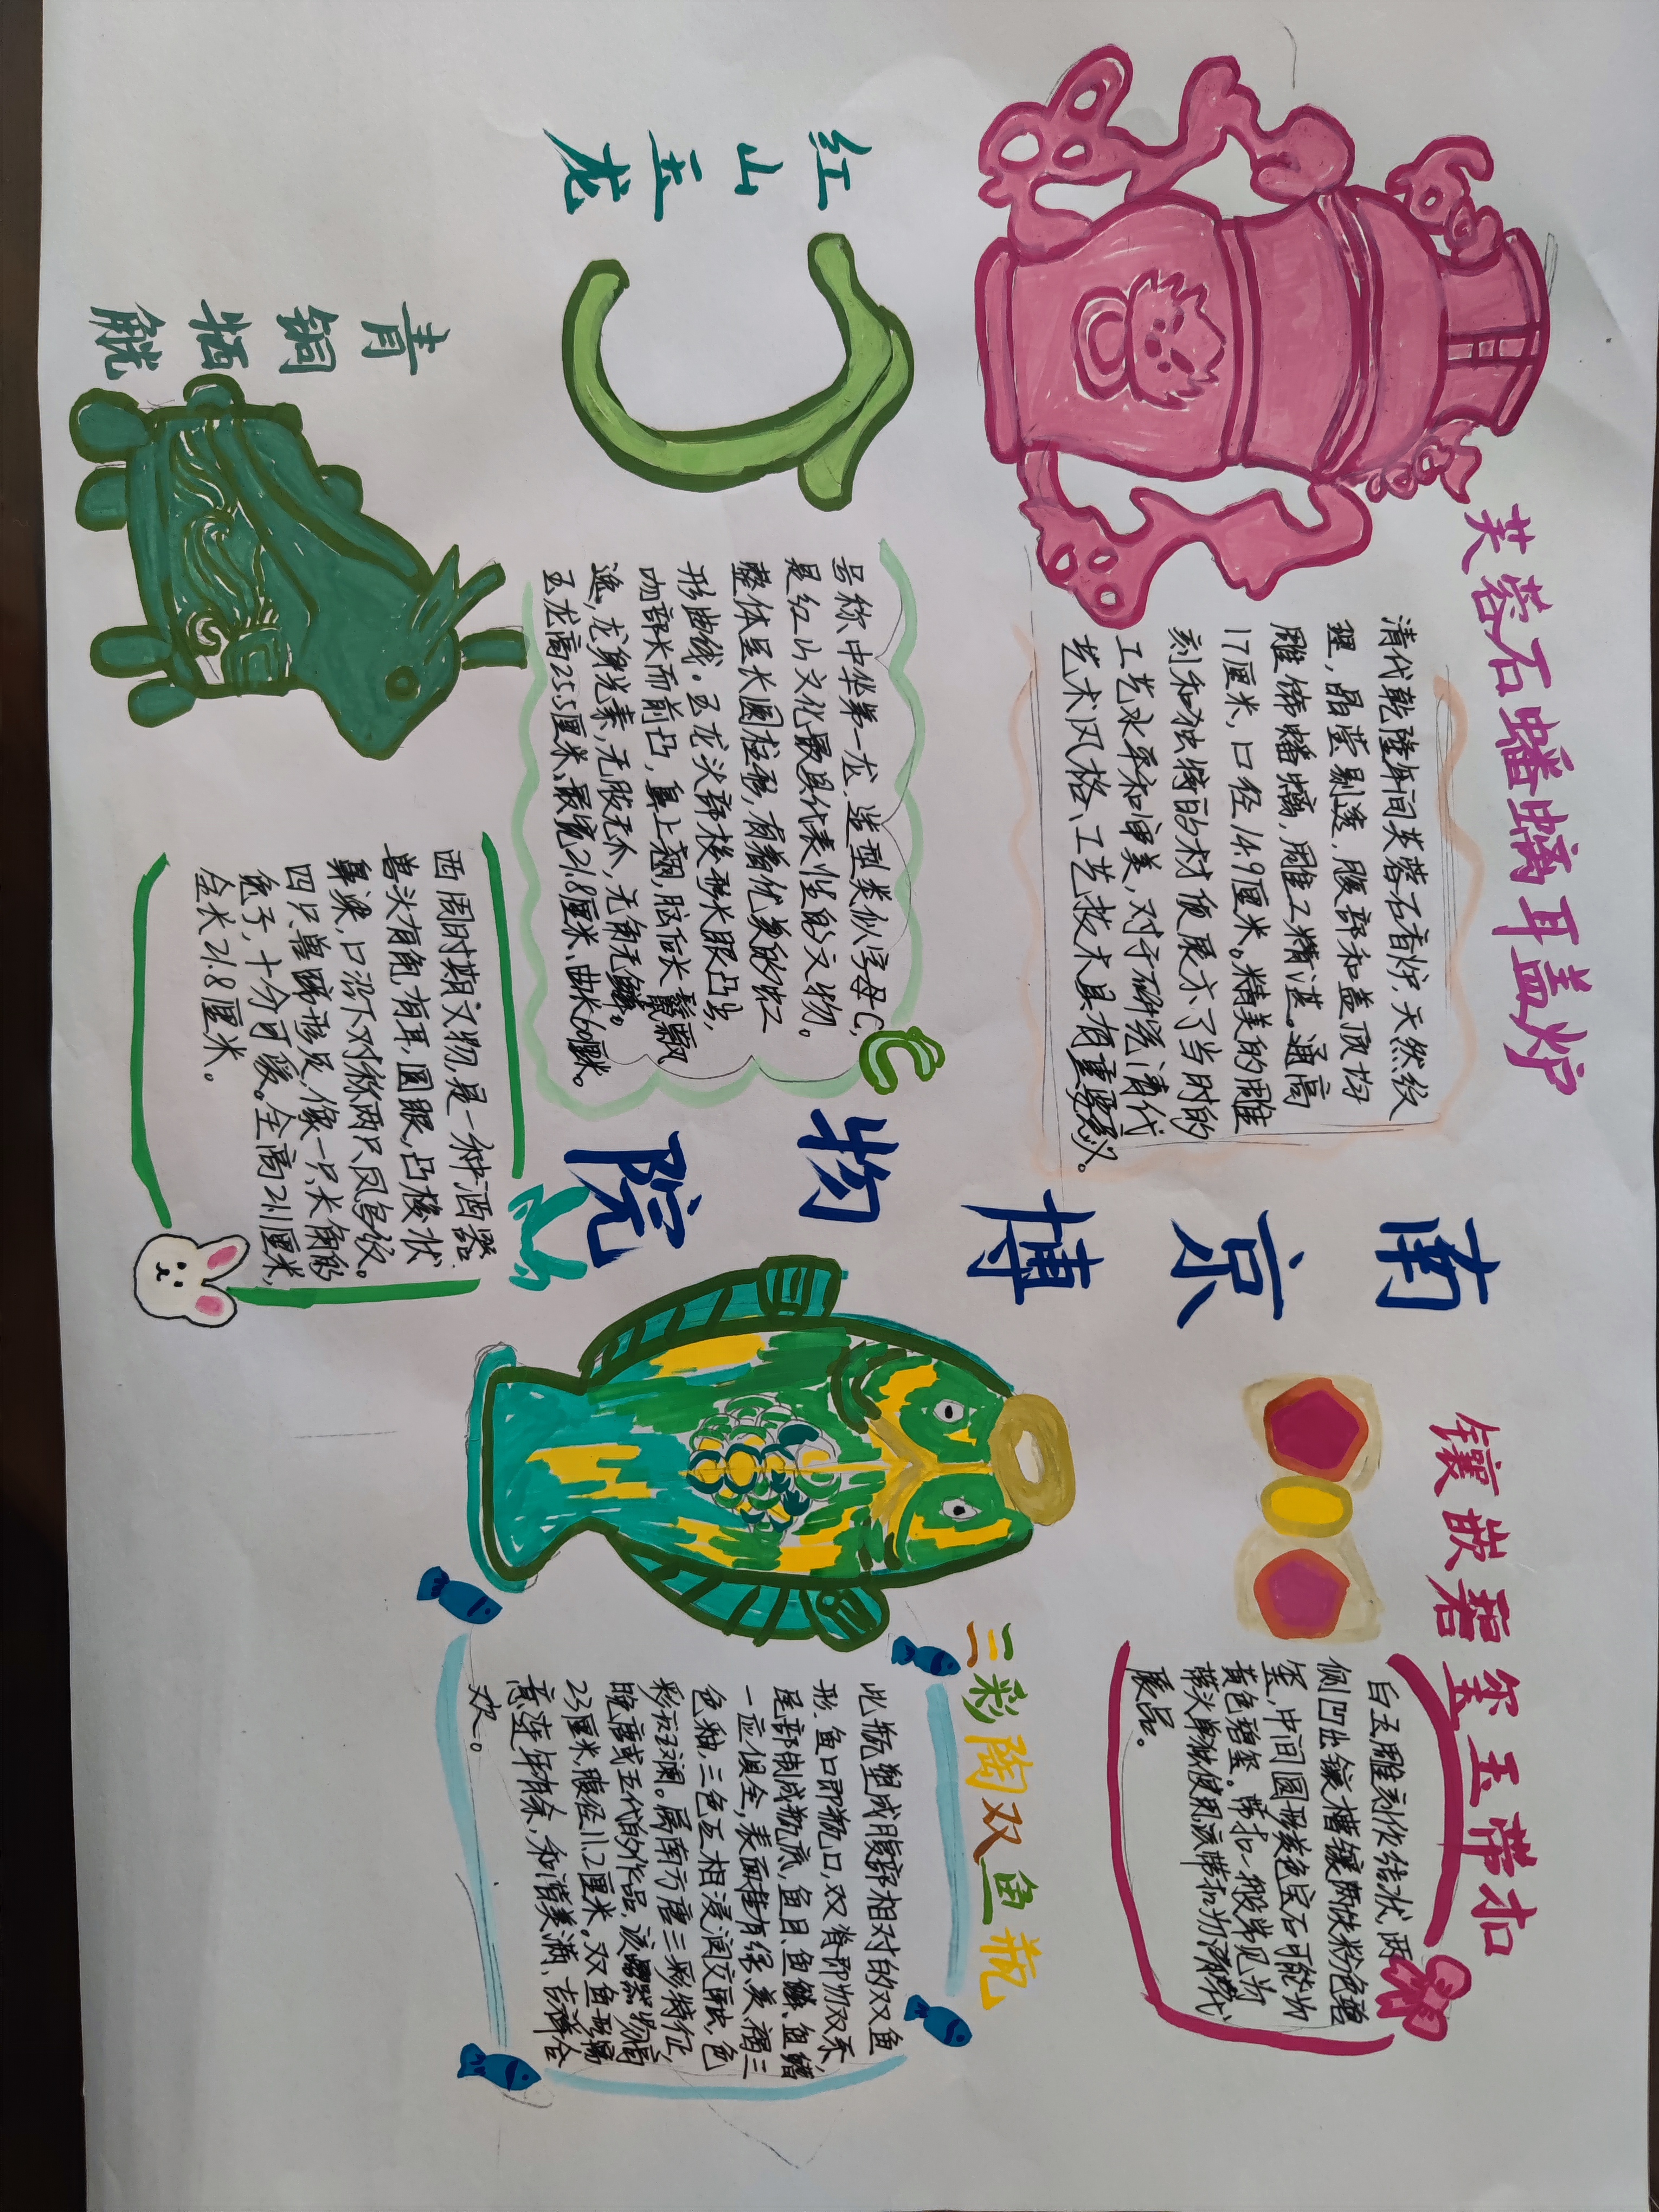 芙蓉石蟠螭耳盖炉
清代乾隆年间芙蓉石香炉,天然纹
理,晶莹剔透,腹部和盖顶均
雕饰蟠螭,雕工精湛。通高
17厘米,口径14.9厘米。精美的雕
刻和独特的材质展示了当时的
工艺水平和审美,对于研究清代
艺术风格、工艺技术具有重要意义。
南
京
博
物
院
镶嵌碧玺玉带扣
白玉雕刻作结状,两
侧凹出镶槽镶两块粉色碧
玺,中间圆形黄色宝石可能为
黄色碧玺。带扣一般常见为
带头单独使用,该带扣为清代
展品。
三彩陶双鱼瓶
此瓶塑成腹部相对的双鱼
形.鱼口即瓶口,双脊即为双系,
尾部制成瓶底,鱼目、鱼鳞、鱼鳍
一应俱全,表面挂有绿、黄、褐三
色釉,三色互相浸润交融,色
彩斑斓。属南方唐三彩特征,
晚唐或五代的作品.该器物高
23厘米,腹径11.2厘米。双鱼形寓
意连年有余,和谐美满、吉祥合
欢。
红
山
玉
龙
号称中华第一龙.造型类似字母C,
是红山文化最具代表性的文物。
整体呈长圆柱形,有着优美的虹
形曲线。玉龙头部梭形长眼凸出,
吻部长而前凸,鼻上翘,脑后长鬣飘
逸,龙身光素,无肢无爪,无角无鳞。
玉龙高25.5厘米、最宽21.8厘米、曲长60厘米。
青
铜
牺
觥
西周时期文物,是一种酒器.
兽头有角,有耳,圆眼,凸梭状
鼻梁,口沿下对称两只凤鸟纹。
四只兽蹄形足,像一只长角的
兔子,十分可爱。全高21.1厘米,
全长21.8厘米。